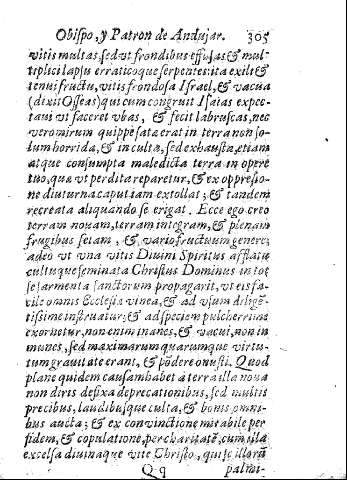 Obispo, y Patron de Andujar. 305
vitis multas, sed vt frondibus effusas & mul-
tiplici lapsu erraticoque serpentes: ita exilt &
tenui fructu, vitis frondosa Israel, & vacua
(dixit Osseas) qui cum congruit Isaias expec-
taui vt faceret vbas, & fecit labruscas, nec
vero mirum quippe sata erat in terra non so-
lum horrida, & in culta, sed exhausta, etiam
atque consumpta maledicta terra in opere
tuo, quæ vt perdita reparetur, & ex oppressio-
ne diuturna caput iam extollat; & tandem
recreata aliquando se erigat. Ecce ego creo
terram nouam, terram integram, & plenam
frugibus fetam, & vario fructuum genere;
adeo vt vna vitis Diuini Spiritus afflatu
cultuque seminata Christus Dominus in tot
se sarmenta sanctorum propagarit, vt eis fa-
cile omnis Ecclesia vinea, & ad vsum diligē-
tissime instruatur; & ad speciem pulcherrime
exornetur, non enim inanes, & vacui, non in
munes, sed maximarum quarumque virtu-
tum grauitate erant, & põdere onusti. Quod
plane quidem causam habet à terra illa noua
non diris defixa deprecationibus, sed multis
precibus, laudibusque culta, & bonis omni-
bus aucta; & ex convinctione mirabile per
fidem, & copulatione, per charitatē, cum illa
excelsa diuinaque vite Christo, qui se illorum
Qq palmi-